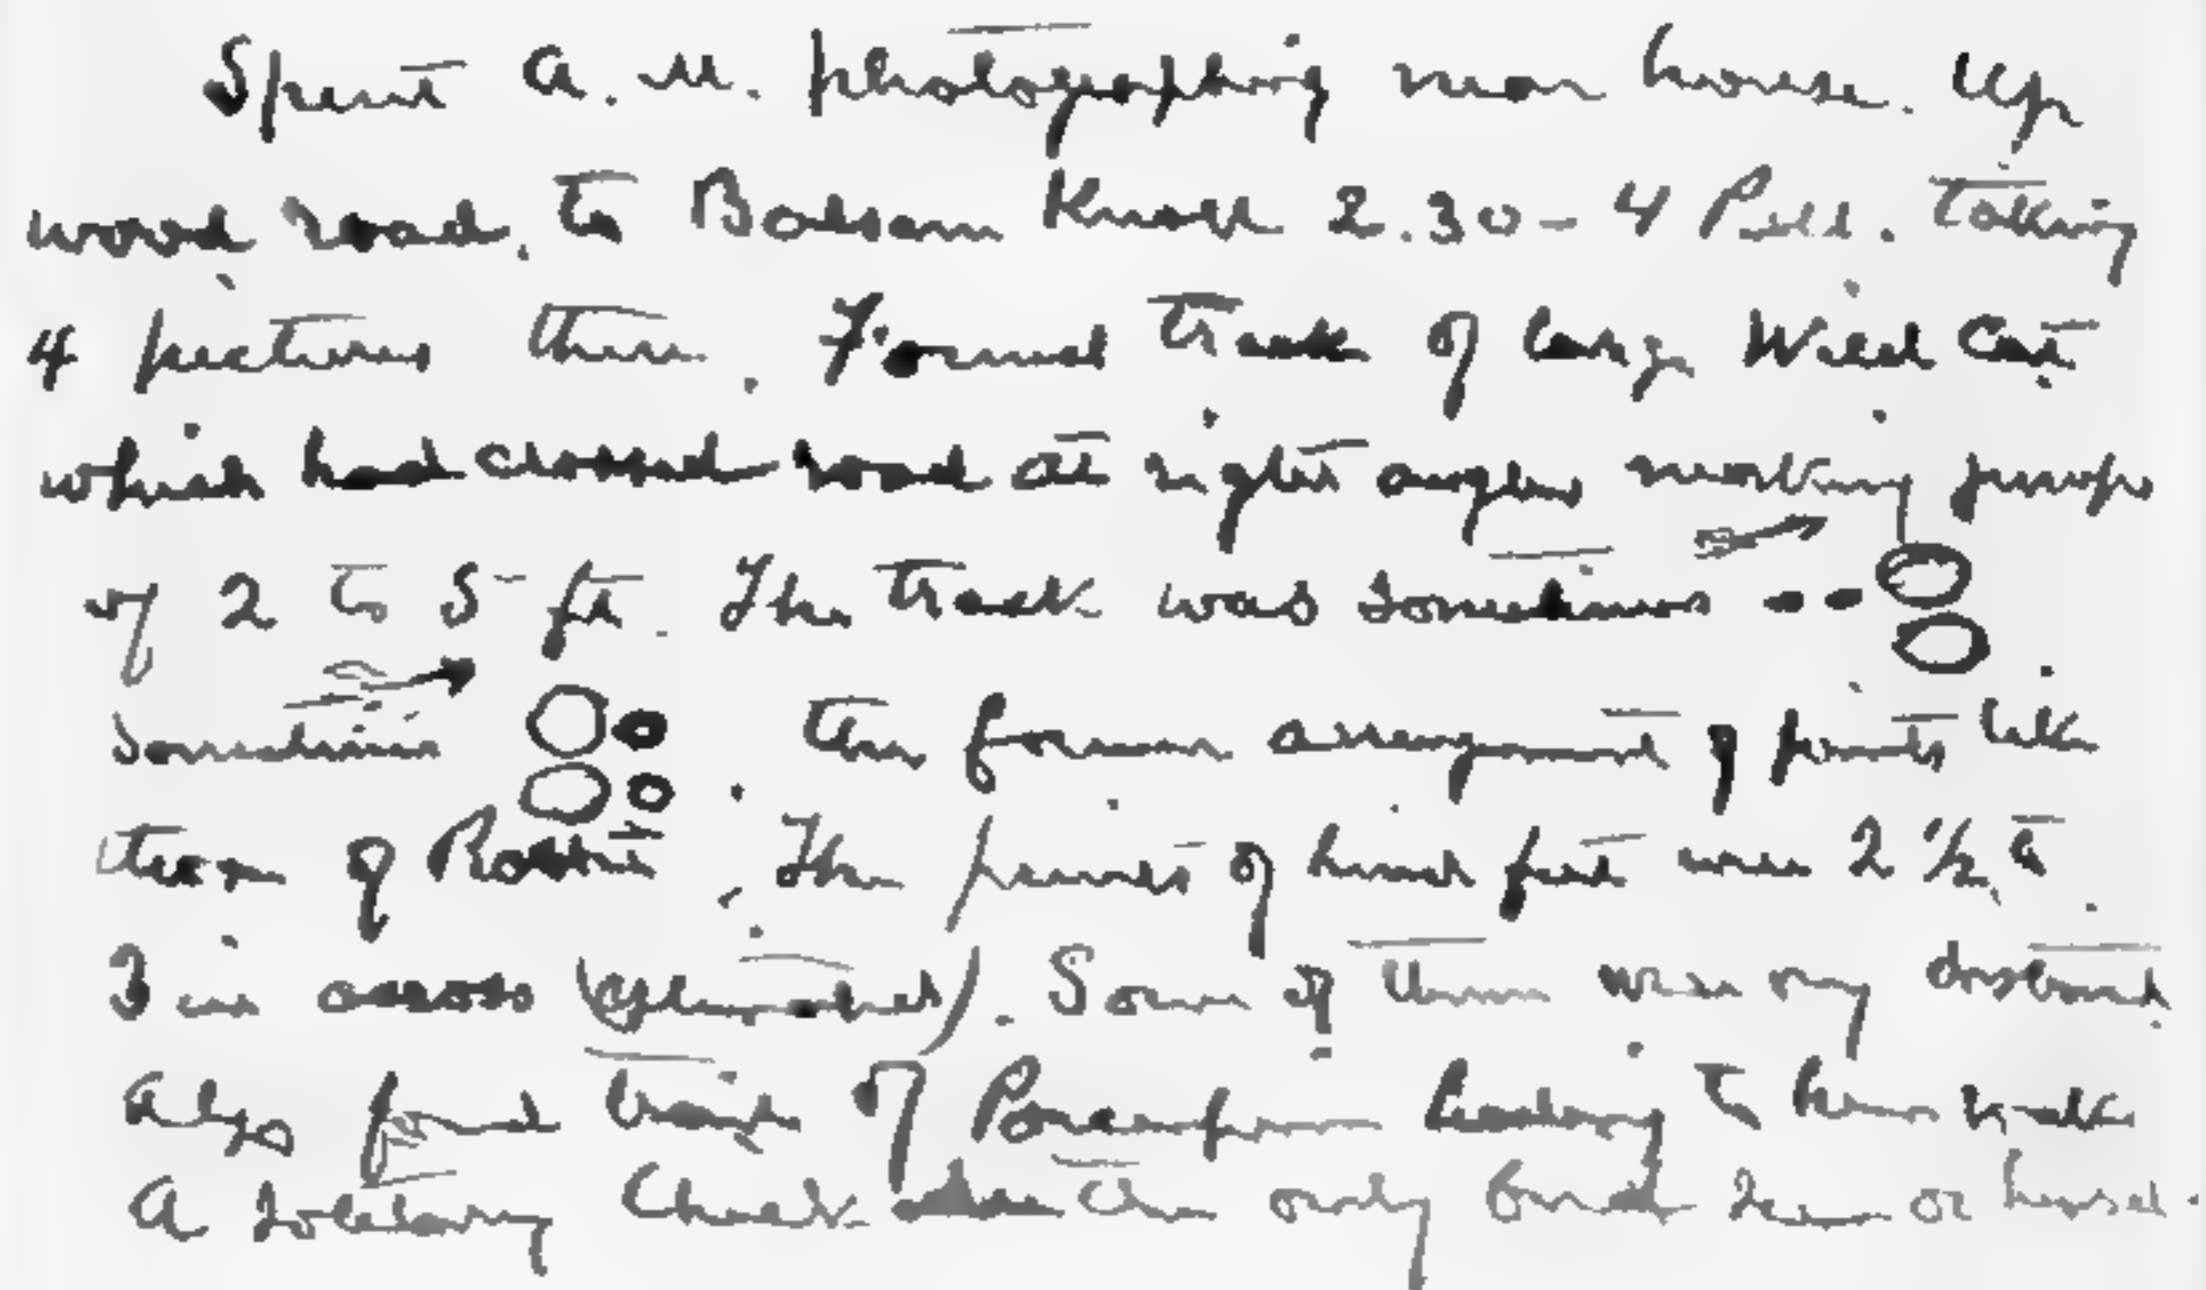 Spent A.M. photographing near house. Up
wood road, to Balsam Knoll 2.30 - 4 P.M. taking
4 pictures there. Found track of large Wild Cat
which had crossed road at right angles making jumps
of 2 to 5 ft. The track was sometimes
sometimes the former arrangement of prints like
that of Rabbit. The prints of hind feet were 2 1/2 to
3 in across (. Some of them were very distinct.
Also found track of Porcupine leading to hemlocks
A solitary Chickadee the only bird seen or heard.